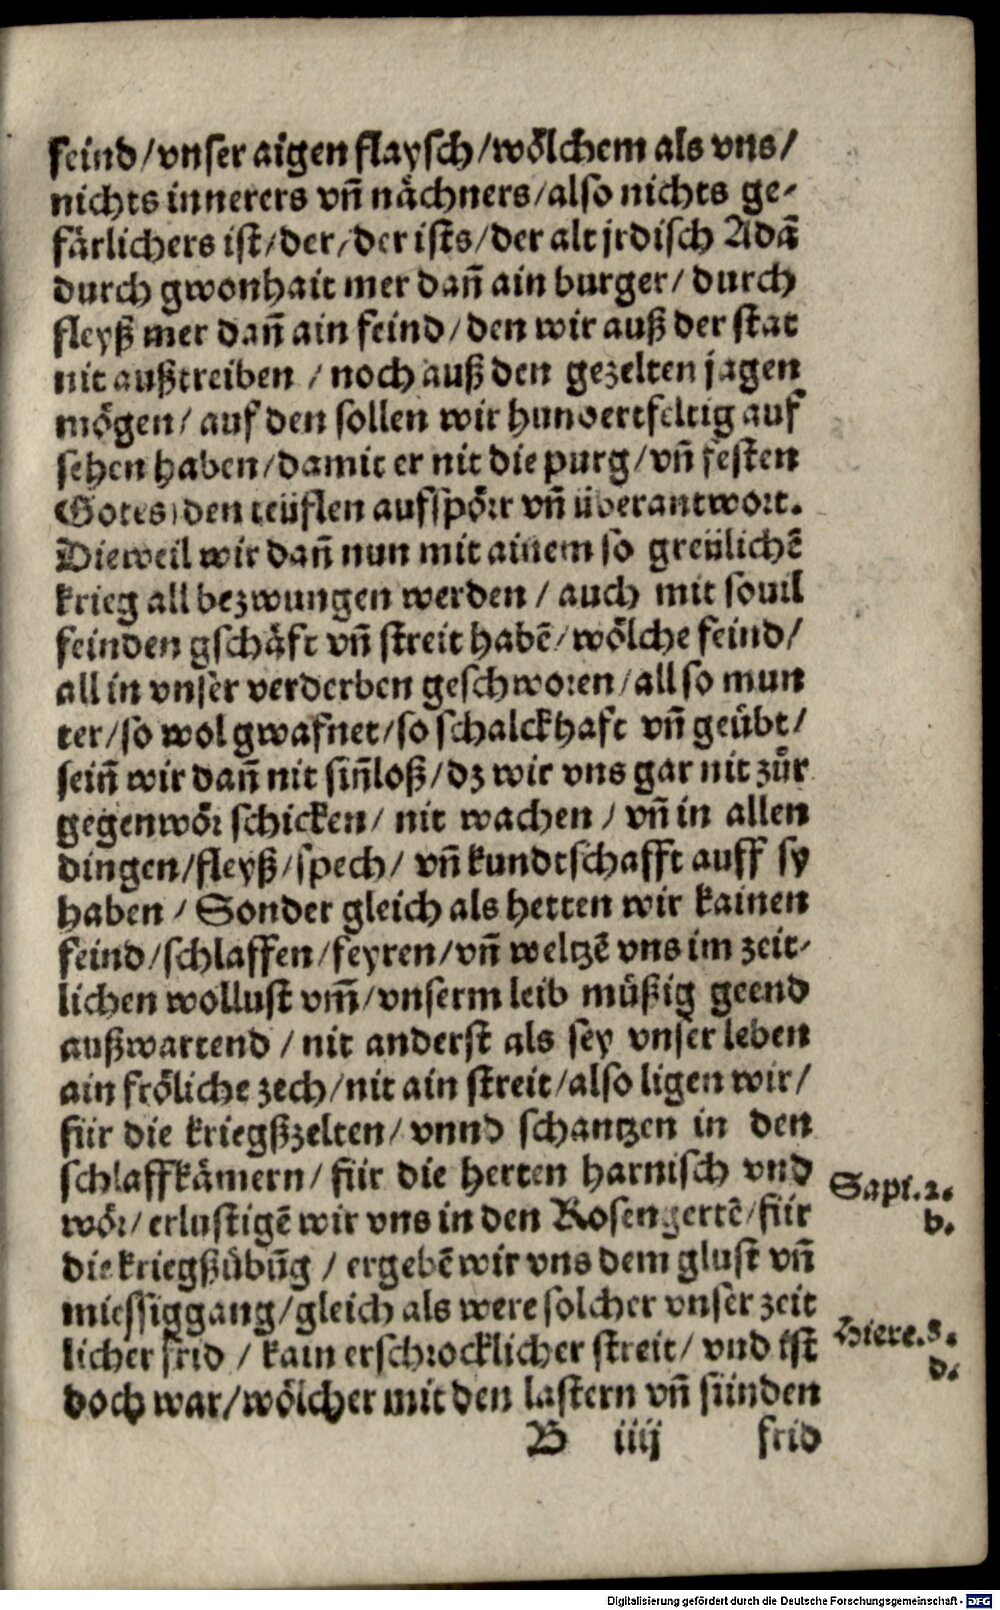 feind/vnser aigen flaysch/wölchem als vns/
nichts innerers vñ nächners/also nichts ge-
färlichers ist/der/der ists/der alt jrdisch Adã
durch gwonhait mer dañ ain burger/ durch
fleyß mer dañ ain feind/den wir auß der stat
nit außtreiben / noch auß den gezelten jagen
mögen/ auf den sollen wir hundertfeltig auf
sehen haben/damit er nit die purg/vñ festen
Gotes/den teüflen aufspörr vñ überantwort.
Dieweil wir dañ nun mit ainem so greülichẽ
krieg all bezwungen werden / auch mit souil
feinden gschäft vñ streit habẽ/wölche feind/
all in vnser verderben geschworen/all so mun
ter/so wol gwafnet/so schalckhaft vñ geübt/
seiñ wir dañ nit siñloß/dz wir vns gar nit zůr
gegenwör schicken/ nit wachen / vñ in allen
dingen/fleyß/spech/ vñ kundtschafft auff sy
haben / Sonder gleich als hetten wir kainen
feind/schlaffen/feyren/vñ weltzẽ vns im zeit-
lichen wollust vm̃/vnserm leib müßig geend
außwartend / nit anderst als sey vnser leben
ain fröliche zech/nit ain streit/also ligen wir/
für die kriegßzelten/ vnnd schantzen in den
schlaffkämern/ für die herten harnisch vnd
wör/erlustigẽ wir vns in den Rosengertẽ/für
die kriegßübũg / ergebẽ wir vns dem glust vñ
miessiggang/gleich als were solcher vnser zeit
licher frid / kain erschrocklicher streit/ vnd ist
doch war/wölcher mit den lastern vñ sünden
B iiij frid
Sapi.2.
b.
Hiere.8.
d.
Digitalisierung gefördert durch die Deutsche Forschungsgemeinschaft - DFG